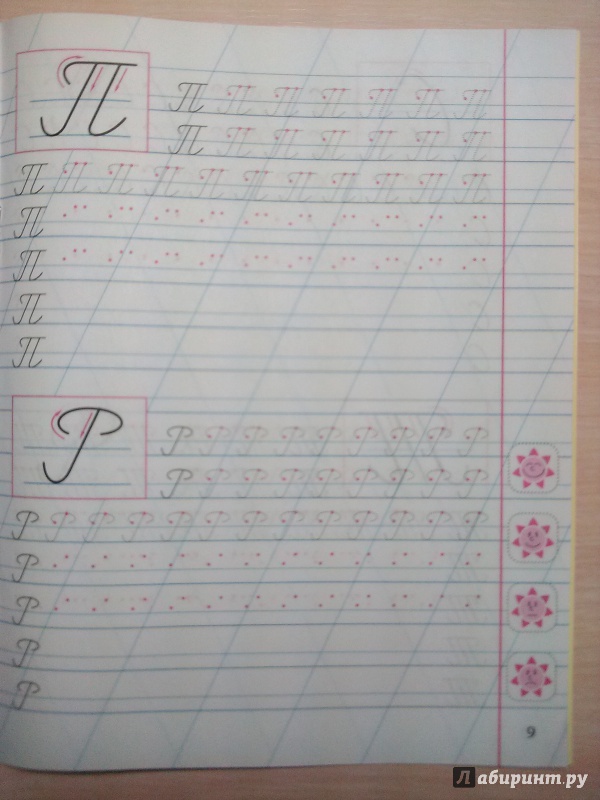 П
П П П П П П П
П П П П П П П
П П П П П П П П П П П
П
П
П
П
Р
Р Р Р Р Р Р Р Р Р
Р Р Р Р Р Р Р Р Р
Р Р Р Р Р Р Р Р Р Р Р Р Р
Р
Р
Р
Р
9
Лабиринт.ру